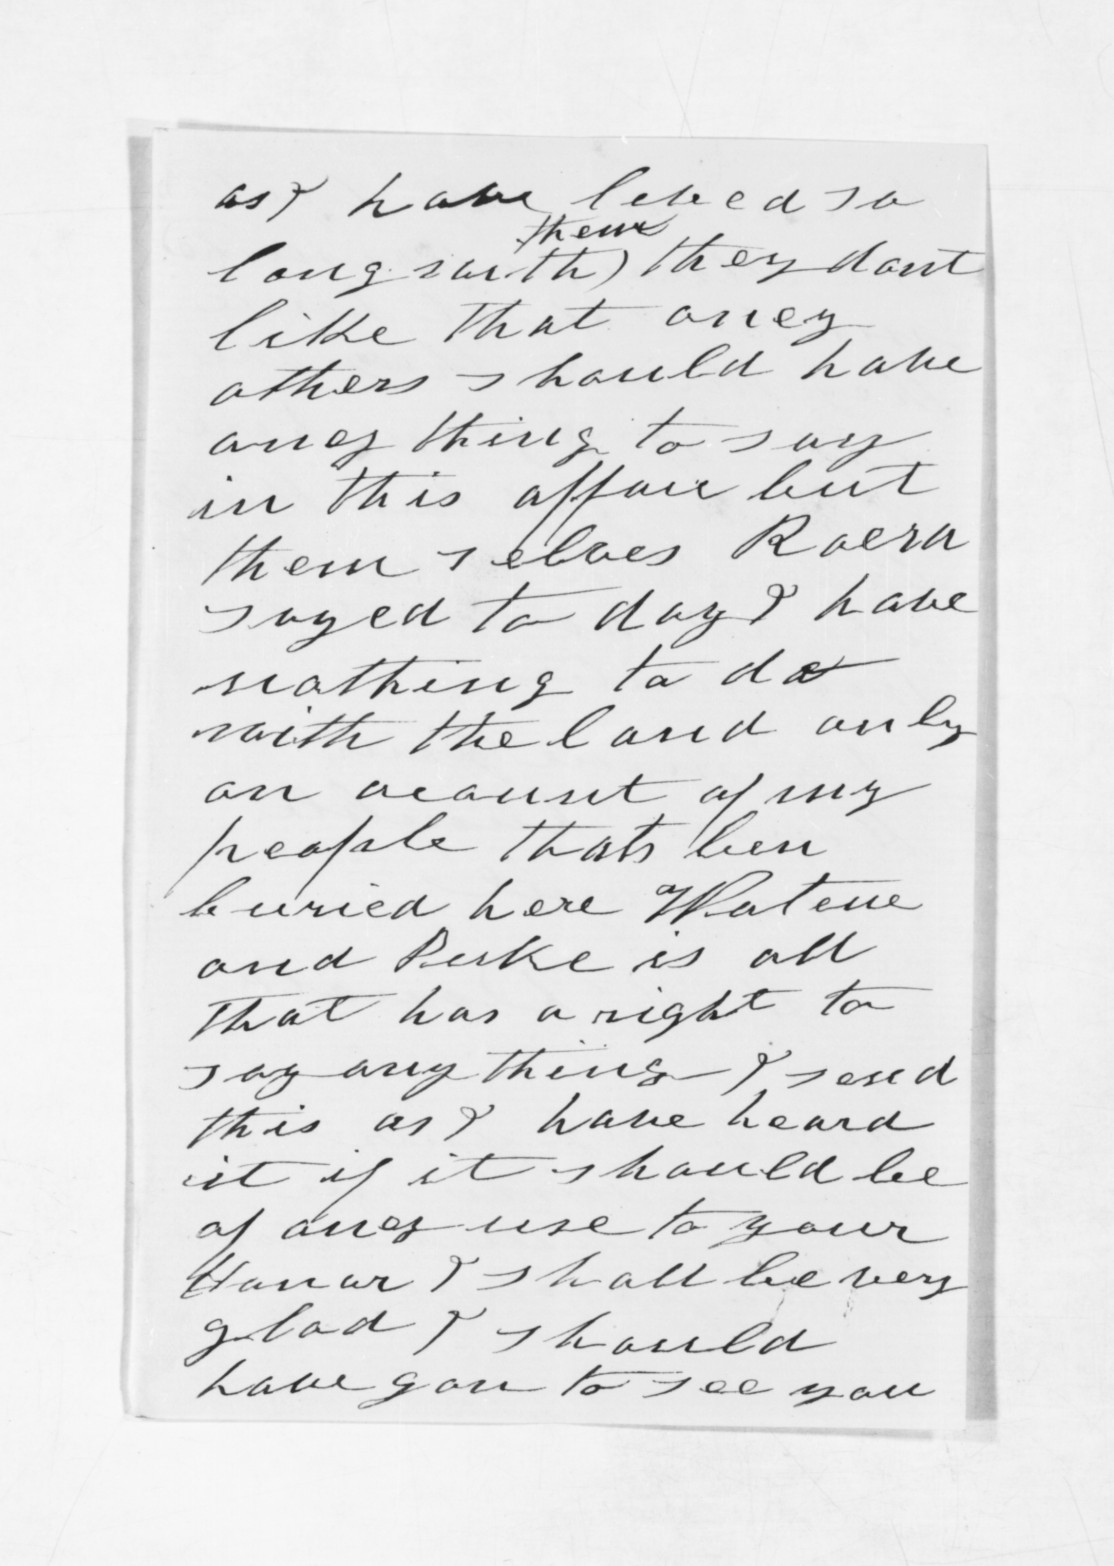 as I have leved so
long with them) they dont
like that oney
others should have
aney thing to say
in this affair but
them selves Roera
sayed to day I have
nothing to do
with the land only
on acount of my
people thats ben
buried here Watene
and Peske is all
that has a right to
say any thing I send
this as I have heard
it if it should be
of aney use to your
Honor I shall be very
glad I should
have gon to see you